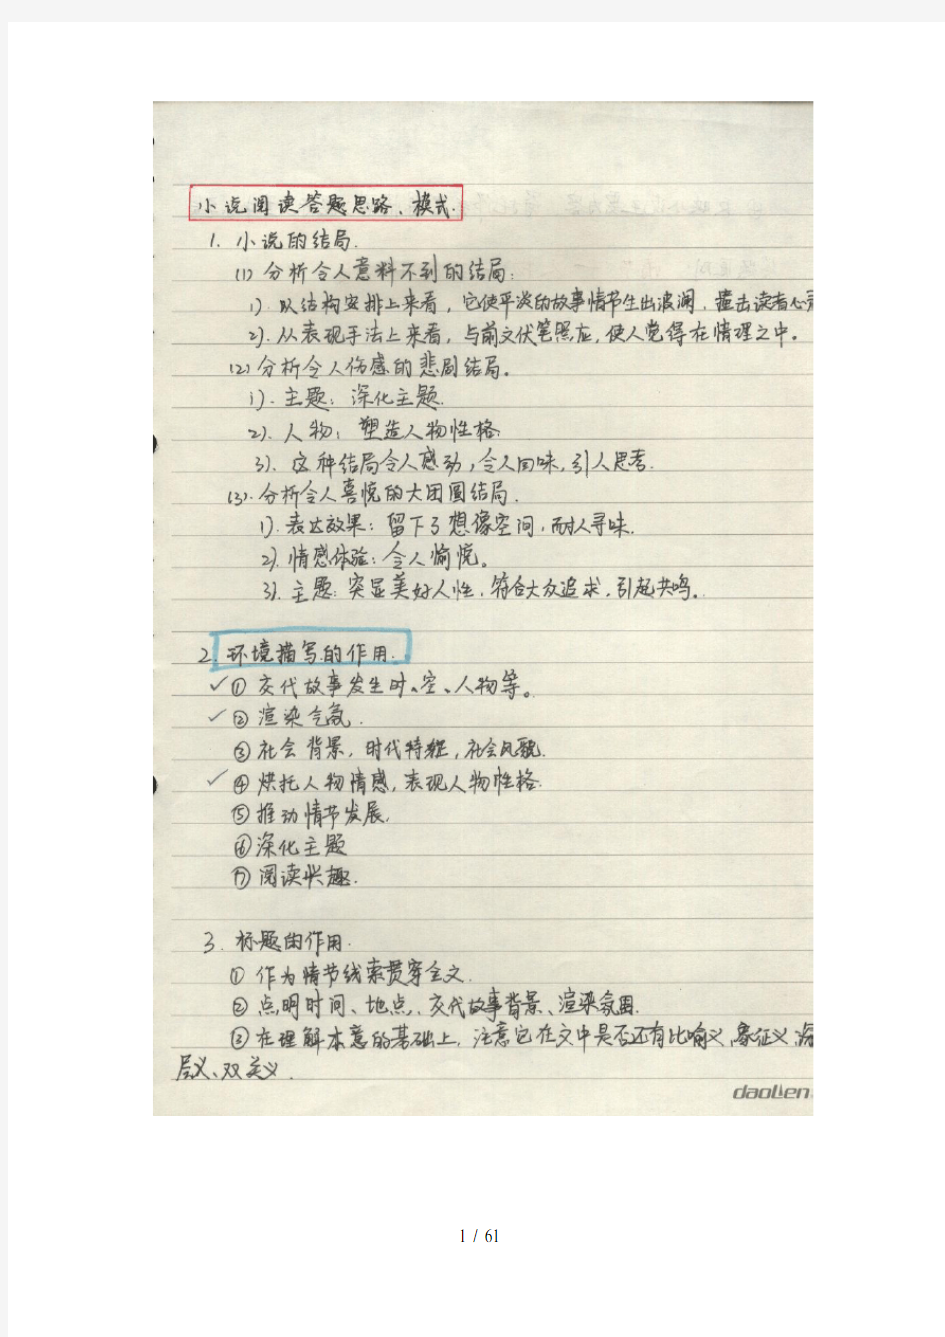 小说阅读答题思路、模式.
1. 小说的结局.
(1) 分析令人意料不到的结局:
1). 从结构安排上来看, 它使平淡的故事情节生出波澜, 撞击读者心灵
2). 从表现手法上来看, 与前文伏笔照应, 使人觉得在情理之中。
(2) 分析令人伤感的悲剧结局。
1). 主题: 深化主题.
2). 人物: 塑造人物性格
3). 这种结局令人感动, 令人回味, 引人思考.
(3). 分析令人喜悦的大团圆结局.
1). 表达效果: 留下了想像空间, 耐人寻味.
2). 情感体验: 令人愉悦。
3). 主题: 突显美好人性, 符合大众追求, 引起共鸣。
2. 环境描写的作用.
✓ ① 交代故事发生时、空、人物等。
✓ ② 渲染气氛.
③ 社会背景, 时代特征, 社会风貌.
✓ ④ 烘托人物情感, 表现人物性格.
⑤ 推动情节发展,
⑥ 深化主题
⑦ 阅读兴趣.
3. 标题的作用.
① 作为情节线索贯穿全文.
② 点明时间、地点, 交代故事背景、渲染氛围.
③ 在理解本意的基础上, 注意它在文中是否还有比喻义、象征义、
层义、双关义.
daolien
1 / 61